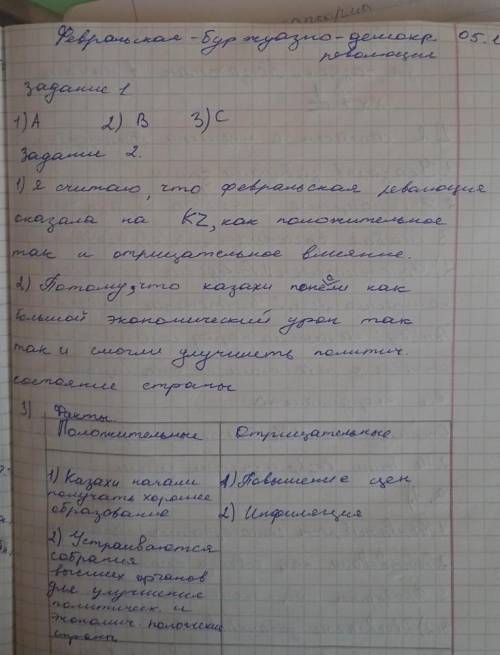 Февральская-буржуазно-демокр. 05.1
революция
Задание 1
1) А 2) В 3) С
Задание 2.
1) Я считаю, что февральская революция
оказала на KZ, как положительное
так и отрицательное влияние.
2) Потому, что казахи понесли как
большой экономический урон так
так и смогли улучшить политич.
состояние страны
3) Факты.
Положительные Отрицательные
1) Казахи начали 1) Повышение цен
получать хорошее
образование 2) Инфиляция
2) Устраиваются
собрания
высших органов
для улучшения
политическ. и
экономич
страны